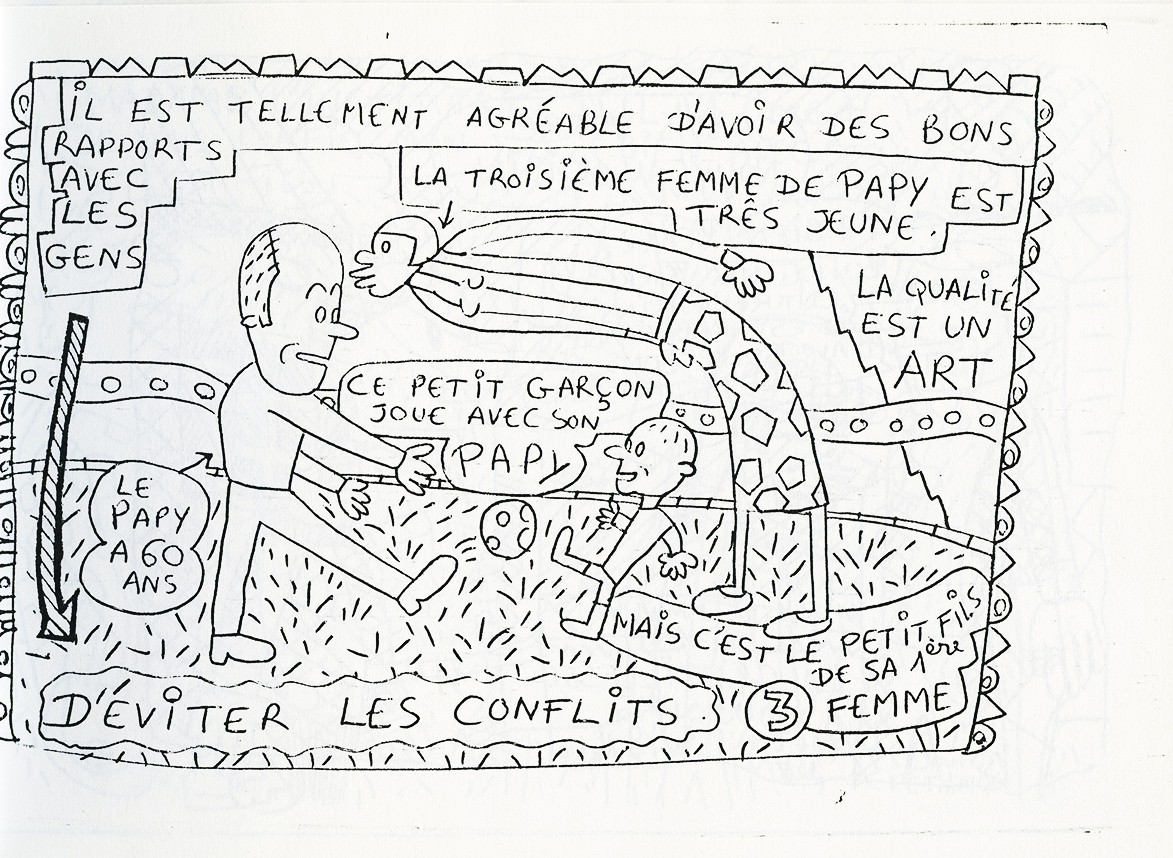 iL EST TELLEMENT AGRÉABLE D'AVOiR DES BONS
RAPPORTS
AVEC
LES
GENS
LA TROiSIÈME FEMME DE PAPY EST
TRÊS JEUNE.
LA QUALiTÉ
EST UN
ART
CE PETiT GARÇON
JOUE AVEC SON
PAPY
LE
PAPY
A 60
ANS
MAiS C'EST LE PETiT FiLS
DE SA 1ère
FEMME
3
D'ÉViTER LES CONFLiTS.